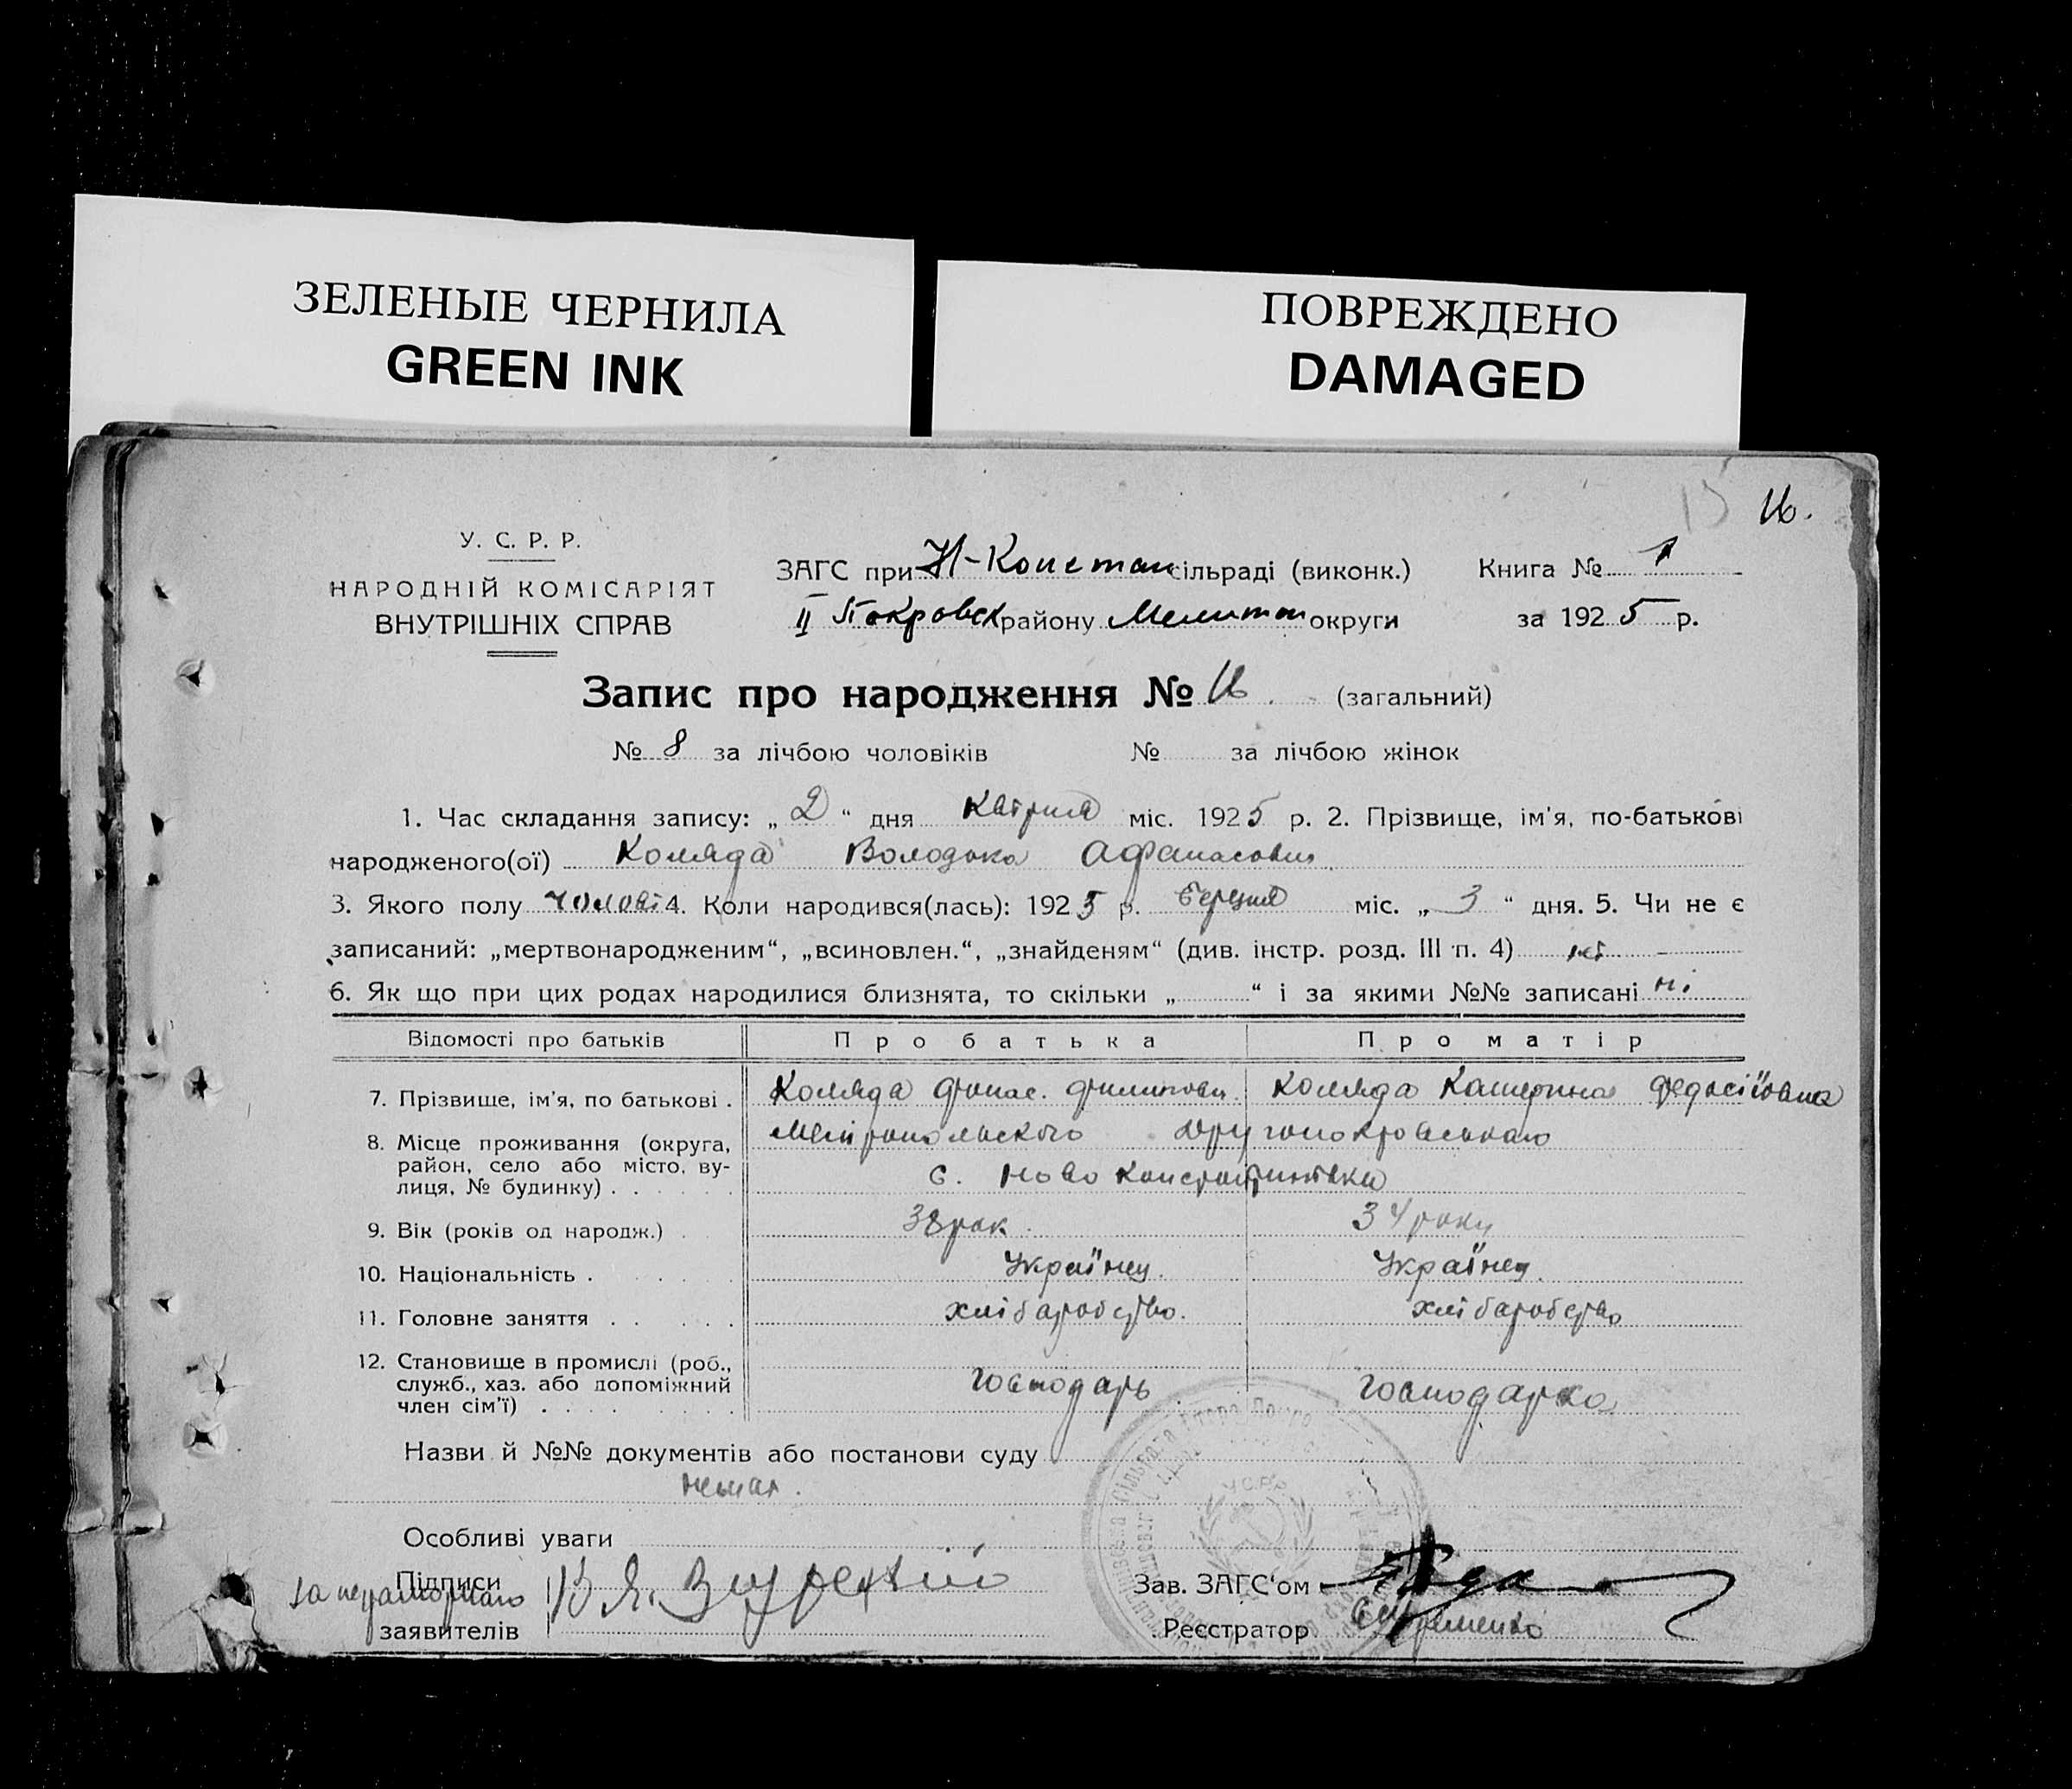 ЗЕЛЕНЫЕ ЧЕРНИЛА
GREEN INK
ПОВРЕЖДЕНО
DAMAGED
15 16.
У. С. Р. Р.
НАРОДНІЙ КОМІСАРІЯТ
ВНУТРІШНІХ СПРАВ
ЗАГС при Н-Констан сільраді (виконк.) Книга № 1
II Покровск району Мелитоп округи за 1925 р.
Запис про народження № 16. (загальний)
№ 8 за лічбою чоловіків № за лічбою жінок
1. Час складання запису: „2“ дня Квітня міс. 1925 р. 2. Прізвище, ім'я, по-батькові
народженого(ої) Коляда Володька Афанасович
3. Якого полу чоловіч 4. Коли народився(лась): 1925 р. Березня міс. „3“ дня. 5. Чи не є
записаний: „мертвонародженим“, „всиновлен.“, „знайденям“ (див. інстр. розд. III п. 4) ні
6. Як що при цих родах народилися близнята, то скільки „ “ і за якими №№ записані ні
Відомості про батьків Про батька Про матір
7. Прізвище, ім'я, по батькові . Коляда Фонас. Филипови. Коляда Катерина Федосіївна
8. Місце проживання (округа, район, село або місто, вулиця, № будинку) . Другопокровського
с. Ново Константинівки
9. Вік (років од народж.) 38 рок. 34 роки
10. Національність . Українец. Українец.
11. Головне заняття . . хліборобство. хліборобство
12. Становище в промислі (роб., служб., хаз. або допоміжний член сім'ї) . Господарь Господарка
Назви й №№ документів або постанови суду
немає.
Особливі уваги
Підписи
заявителів
за неграмотного
Зав. ЗАГС'ом
Реєстратор Єфременко
У.С.Р.Р.